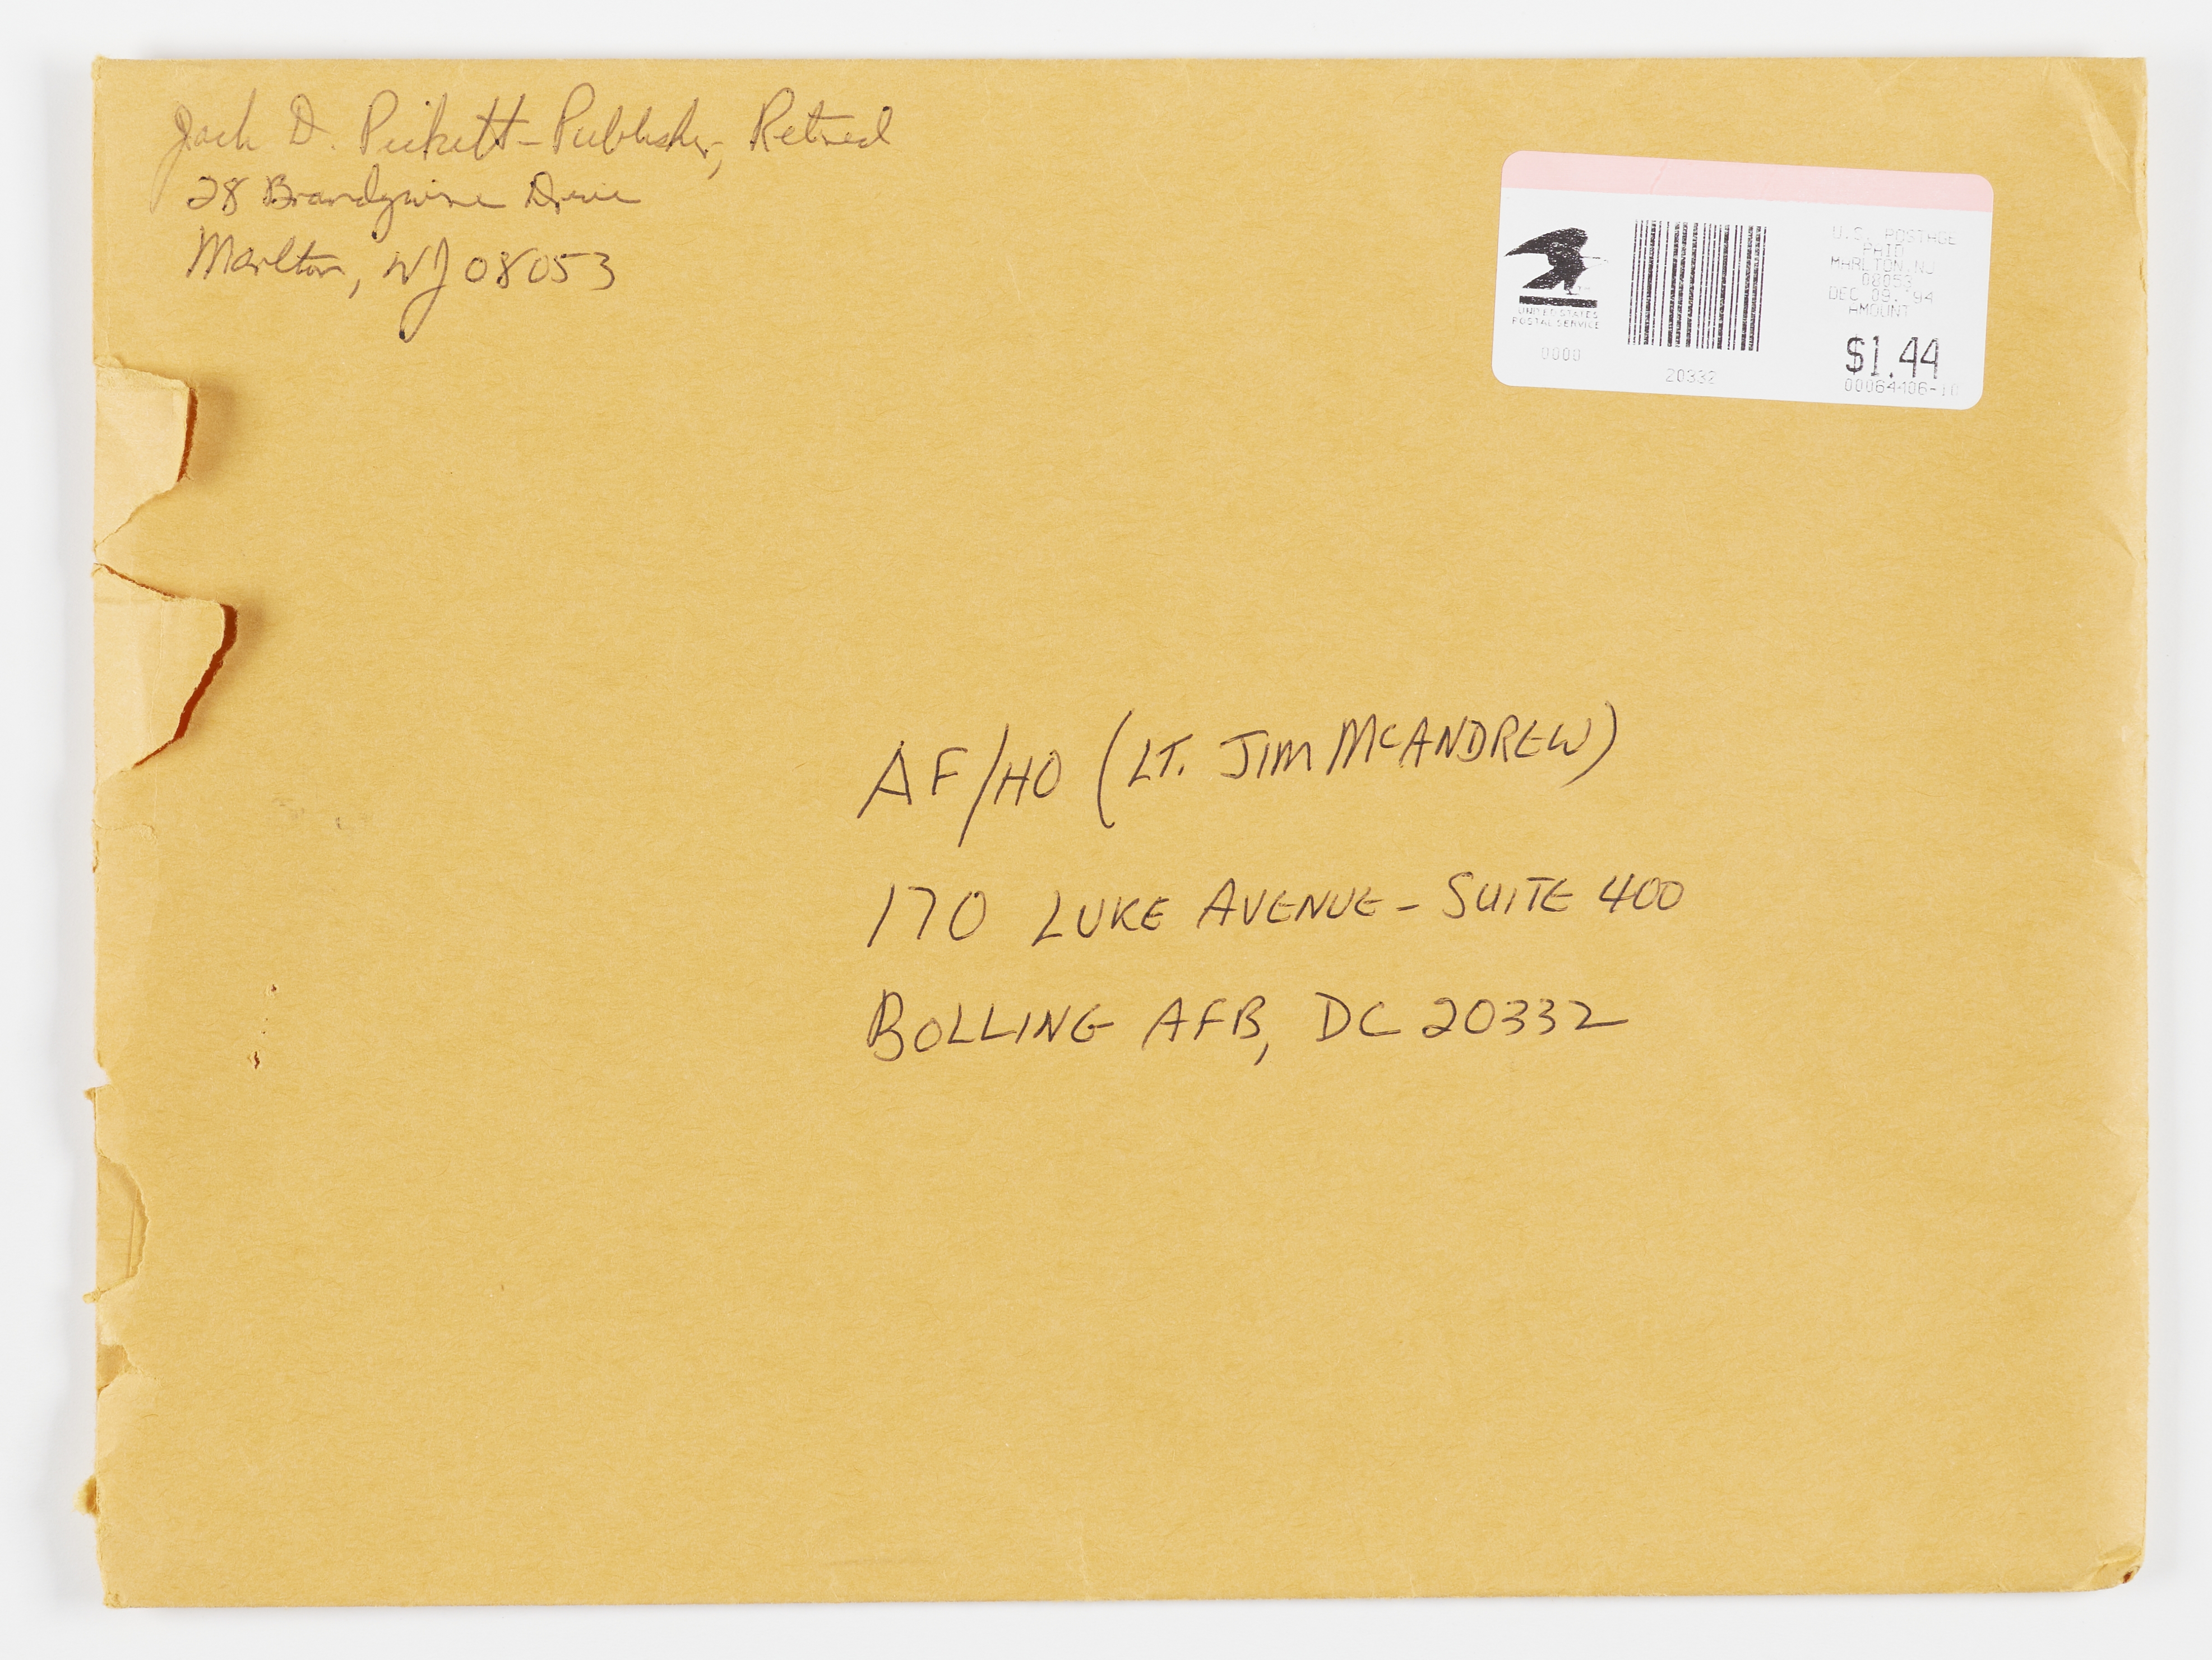 Jack D. Pickett - Publisher, Retired
28 Brandywine Drive
Marlton, NJ 08053
U.S. POSTAGE
PAID
MARLTON, NJ
08053
DEC 09, '94
AMOUNT
$1.44
UNITED STATES
POSTAL SERVICE
0000
20332
AF/HO (LT. JIM McANDREW)
170 LUKE AVENUE - SUITE 400
BOLLING AFB, DC 20332